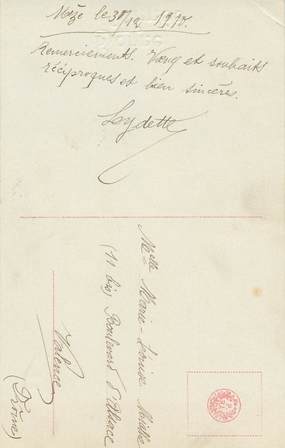 le 30/12 19
Remerciements. Vœux et souhaits
réciproques et bien sincères.
Lydette
Melle Marie-Louise
(11 bis) Boulevard d'Alsace
Valence
(Drôme)